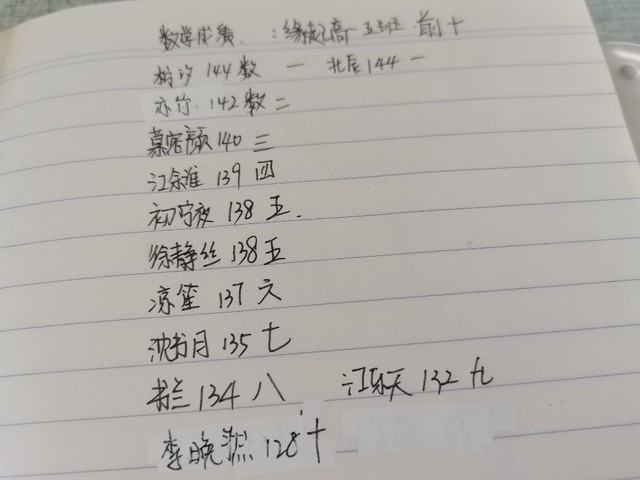 数学成绩：缘起高一五班前十
144数一 北辰144一
亦竹.142数二
慕容颜140三
江余淮139四
初宁夜138五.
徐静丝138五
凉笙137六
沈书月135七
书兰134八 江乐天132九
李晚 128十